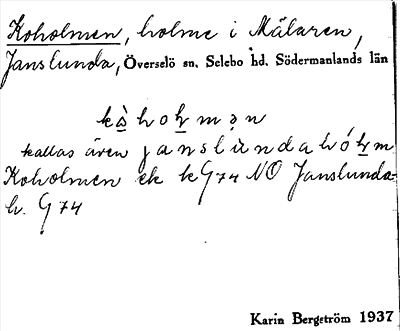 Koholmen, holme i Mälaren,
Janslunda, Överselö sn. Selebo hd. Södermanlands län
kò̀hoḻmən
kallas även janslùndahóḻm
Koholmen ek kG74 NO Janslunda-
h. G74
Karin Bergström 1937